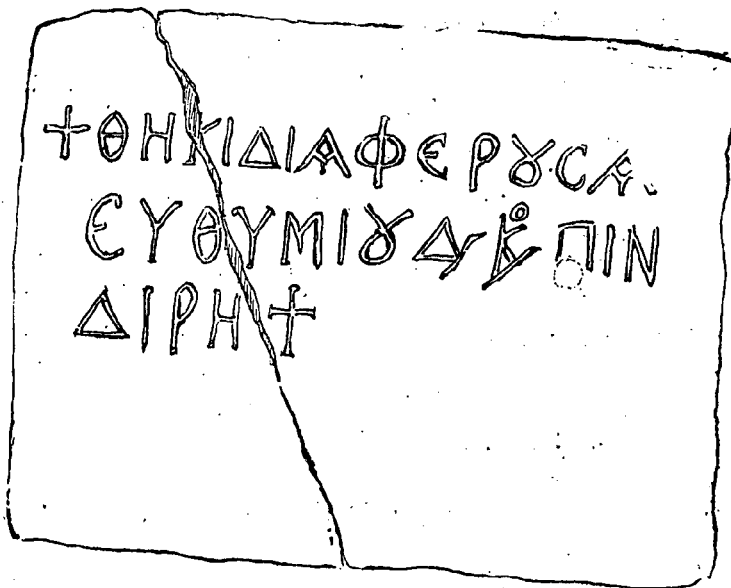 +ΘΗΚΙΔΙΑΦΕΡȢСΑ
ЄΥΘΥΜΙȢ Δ Κο ΠΙΝ
ΔΙΡΗ+